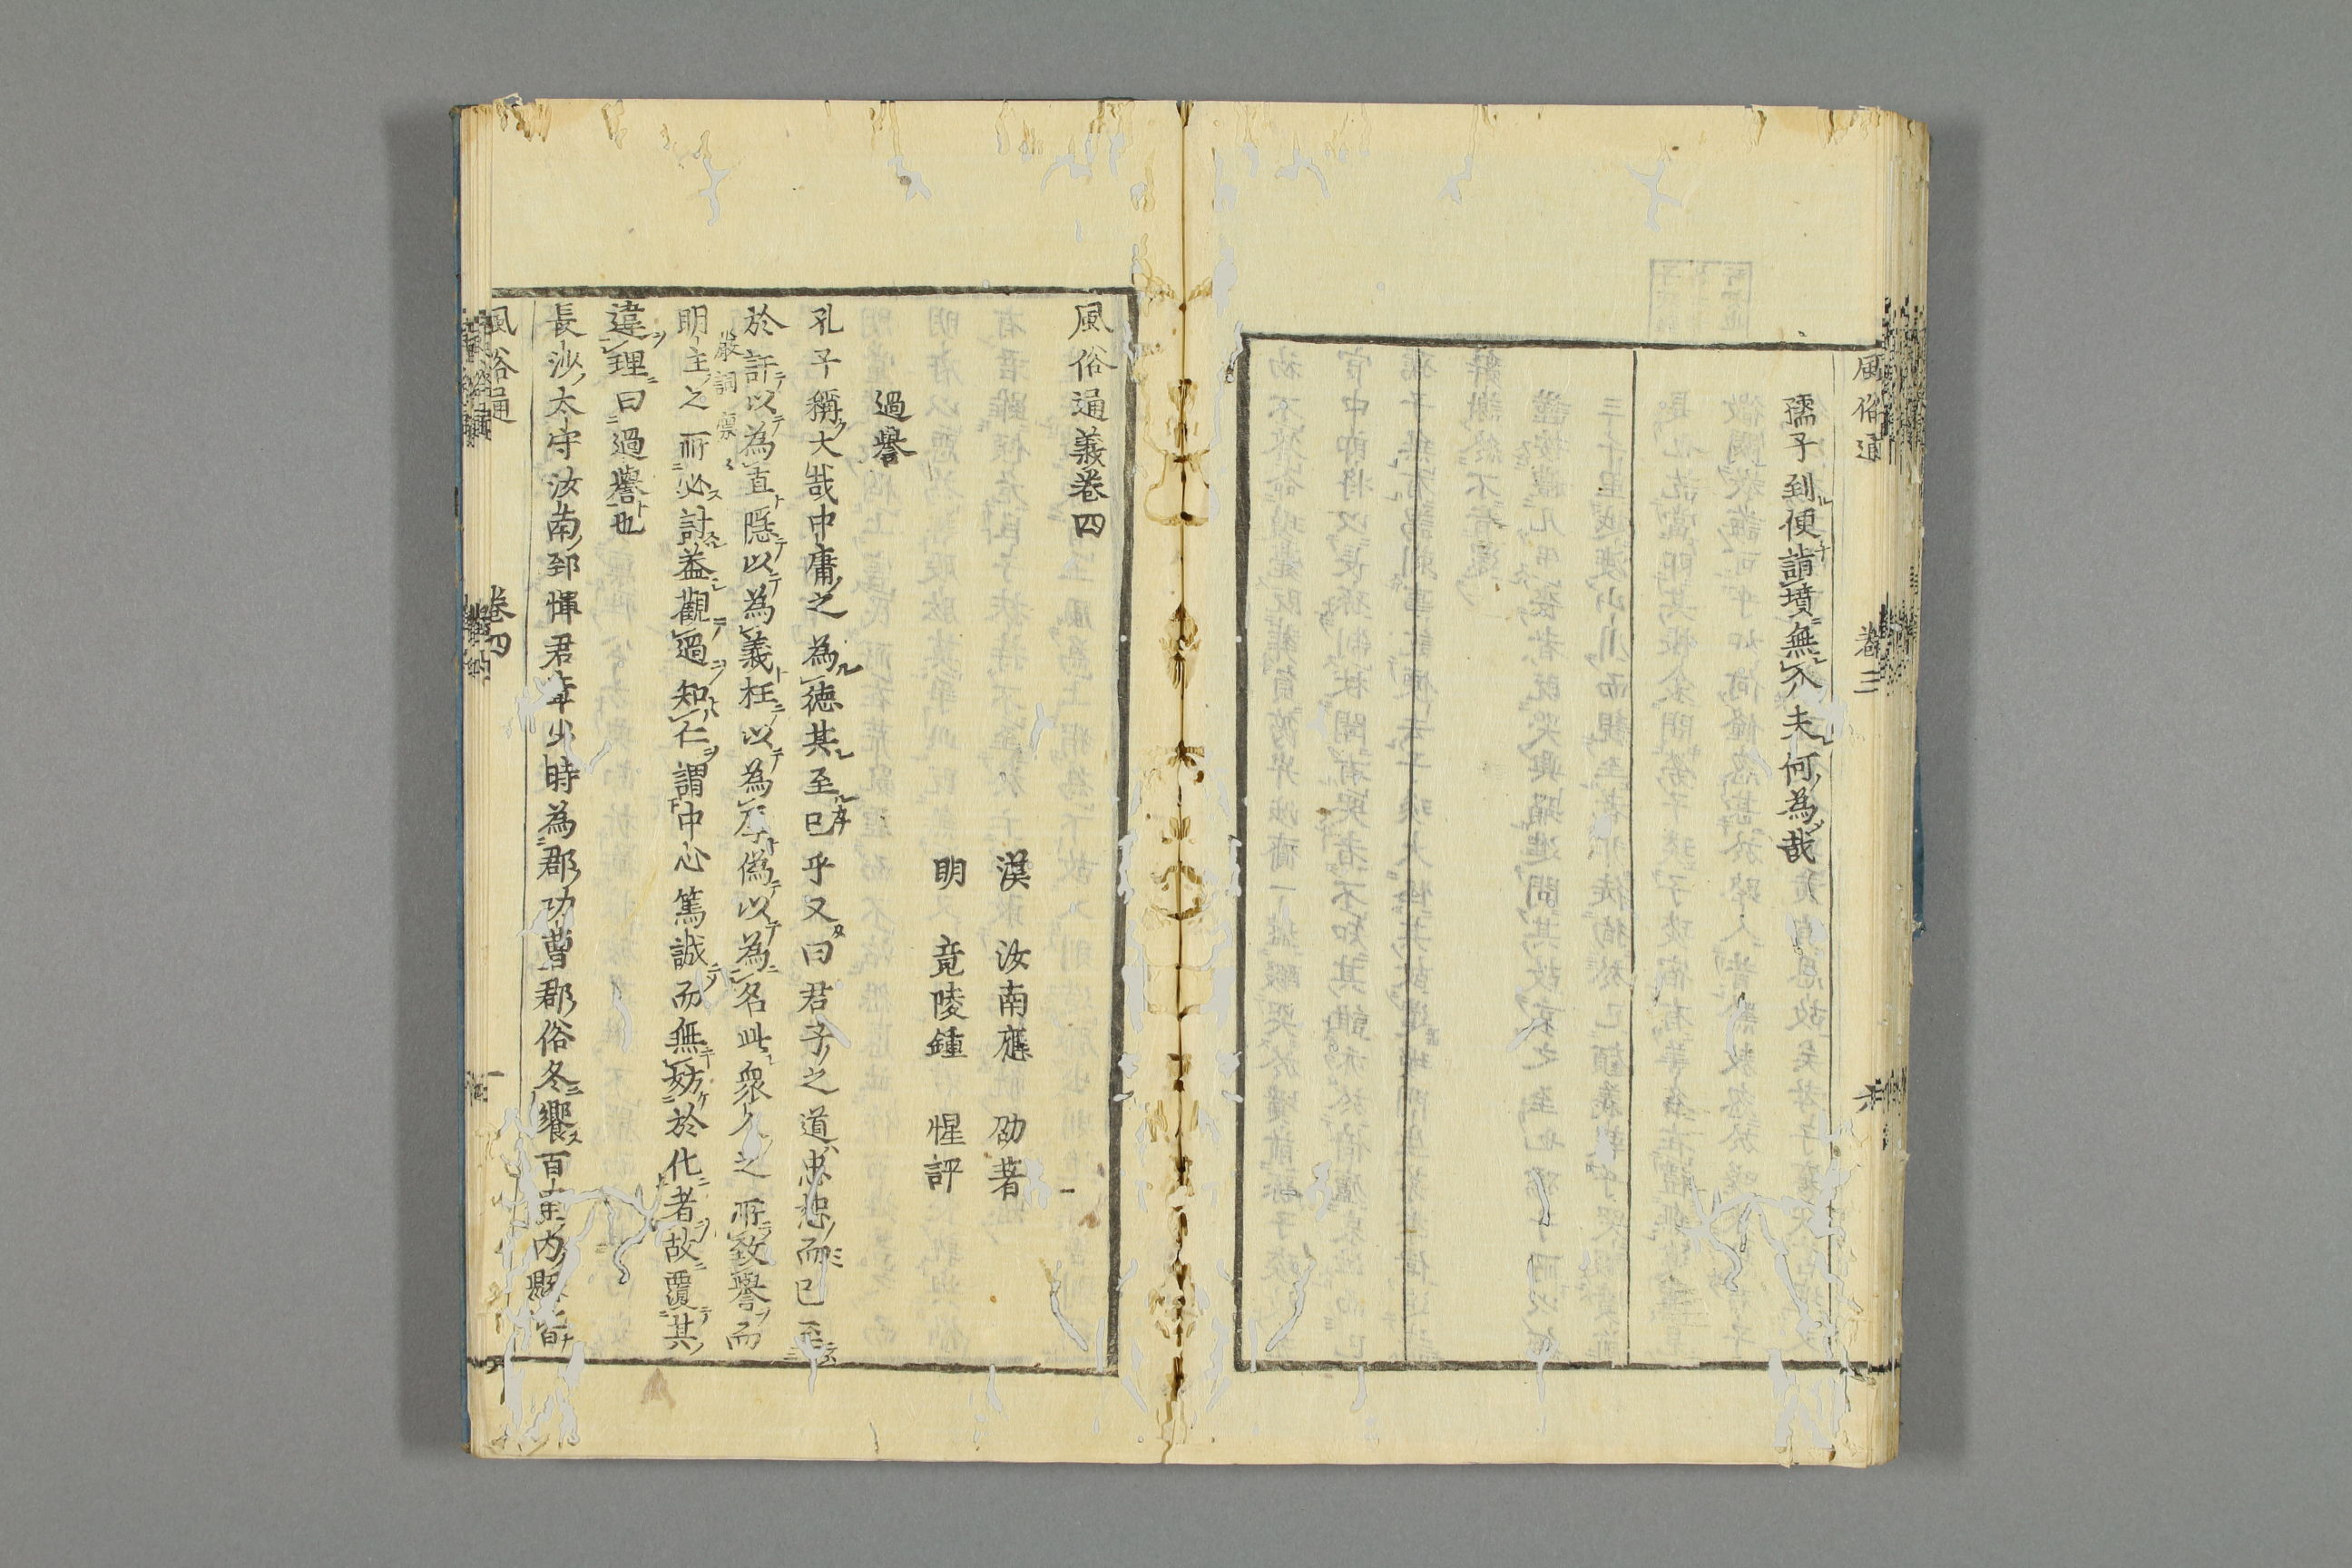 風俗通
卷三
孺子到便詣墳無介夫何為哉
風俗通義卷四
漢 汝南應 劭著
明 竟陵鍾 惺評
過譽
孔子稱大哉中庸之為德其至已乎又曰君子之道忠恕而已至
於訐以為直隱以為義枉以為厚偽以為名此衆人之所致譽而
嚴詞凛々
明主之所必討盖觀過知仁謂中心篤誠而無妨於化者故覆其
違理曰過譽也
長沙太守汝南郅惲君章少時為郡功曹郡俗冬饗百里内縣皆
風俗通
卷四
一